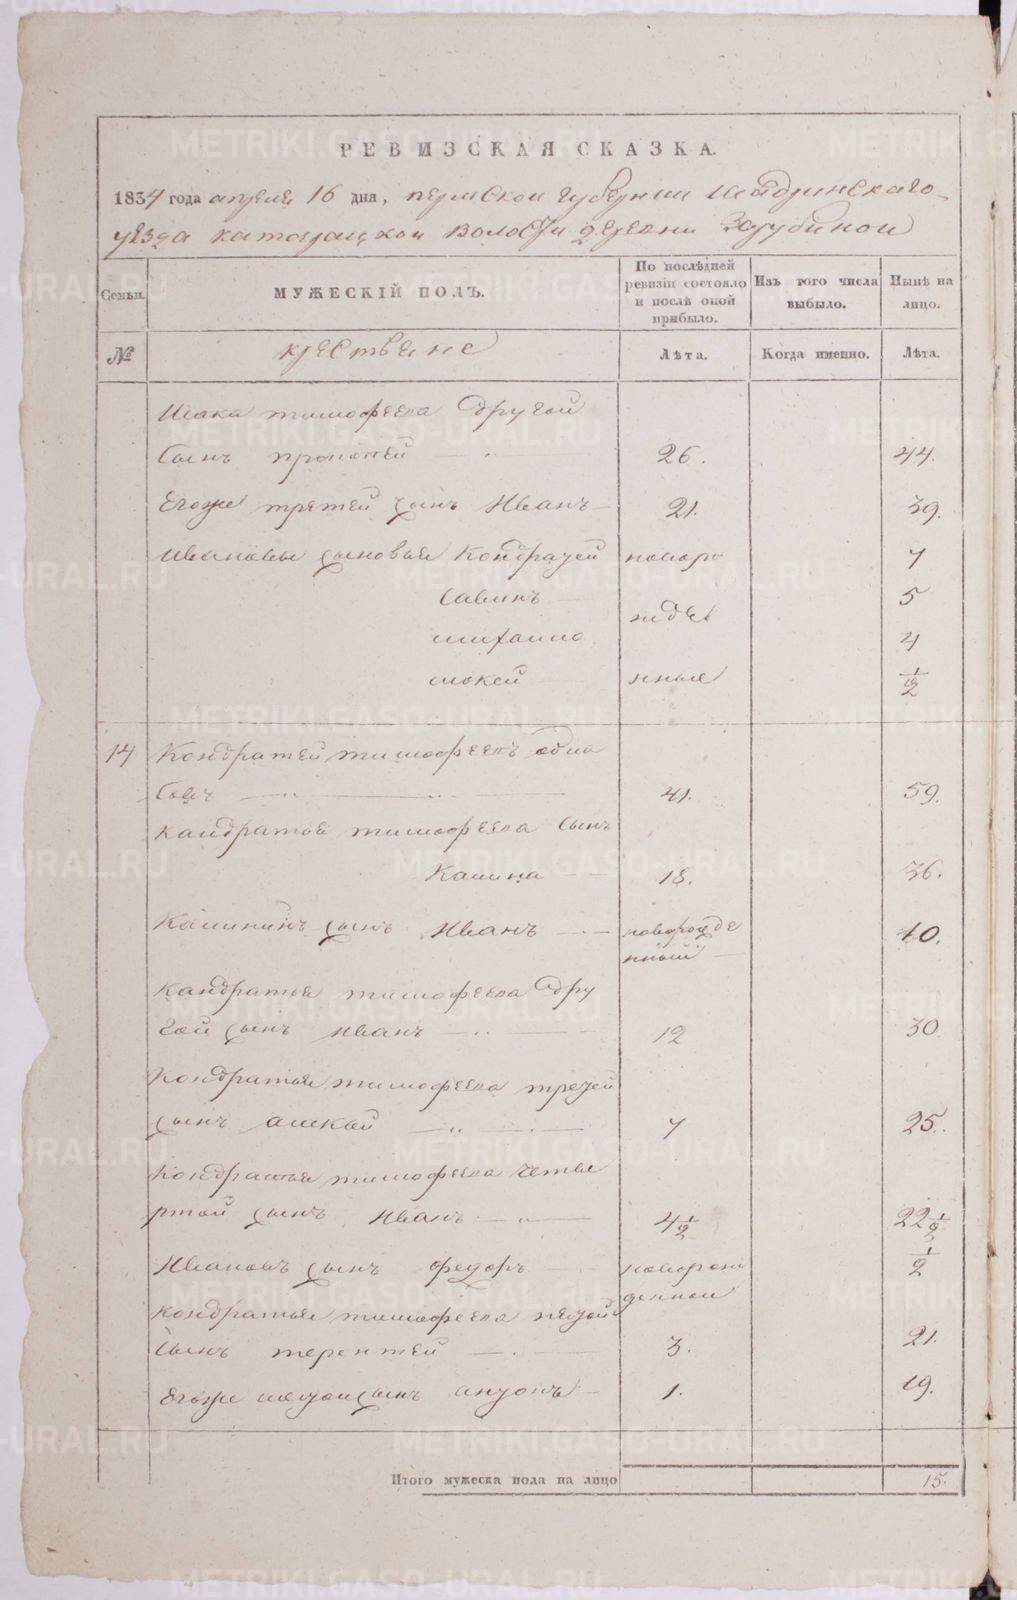 РЕВИЗСКАЯ СКАЗКА.
1834 года апреля 16 дня, пермской губернии Шадринскаго
уезда катайской волости деревни Зарубиной
Семьи. МУЖЕСКІЙ ПОЛЪ. По послѣдней ревизіи состояло и послѣ оной прибыло. Изъ того числа выбыло. Нынѣ на лицо.
№ крестьяне Лѣта. Когда именно. Лѣта.
Исака тимофеева другой
сынъ 26. 44.
Егоже третей сынъ Иванъ 21. 39.
Ивановы сыновья Кондратей новоро 7
Савинъ жде 5
михаило 4
мокей нные 1/2
14 Кондратей тимофеевъ
41. 59.
Кандратья тимофеева сынъ
Калина 18. 36.
Калининъ сынъ Иванъ новорожде 10.
нный
Кандратья тимофеева дру
гой сынъ Иванъ 12 30
Кондратья тимофеева третей
сынъ 7 25.
Кондратья тимофеева четве
ртой сынъ Иванъ 4 1/2 22 1/2
Ивановъ сынъ федоръ новорож 1/2
Кондратья тимофеева пятой денной
сынъ терентей 3. 21.
Егоже шестой сынъ антонъ 1. 19.
Итого мужеска пола на лицо 15.
METRIKI.GASO-URAL.RU